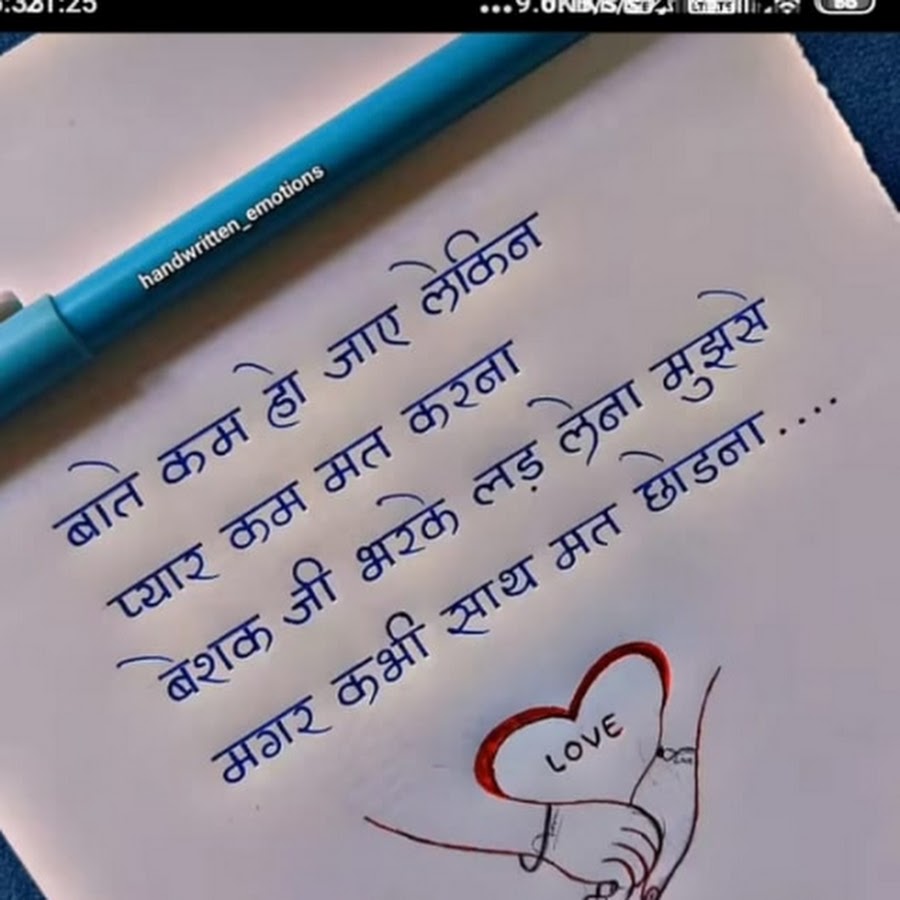 handwritten_emotions
बाते कम हो जाए लेकिन
प्यार कम मत करना
बेशक जी भरके लड़ लेना मुझसे
मगर कभी साथ मत छोडना....
LOVE